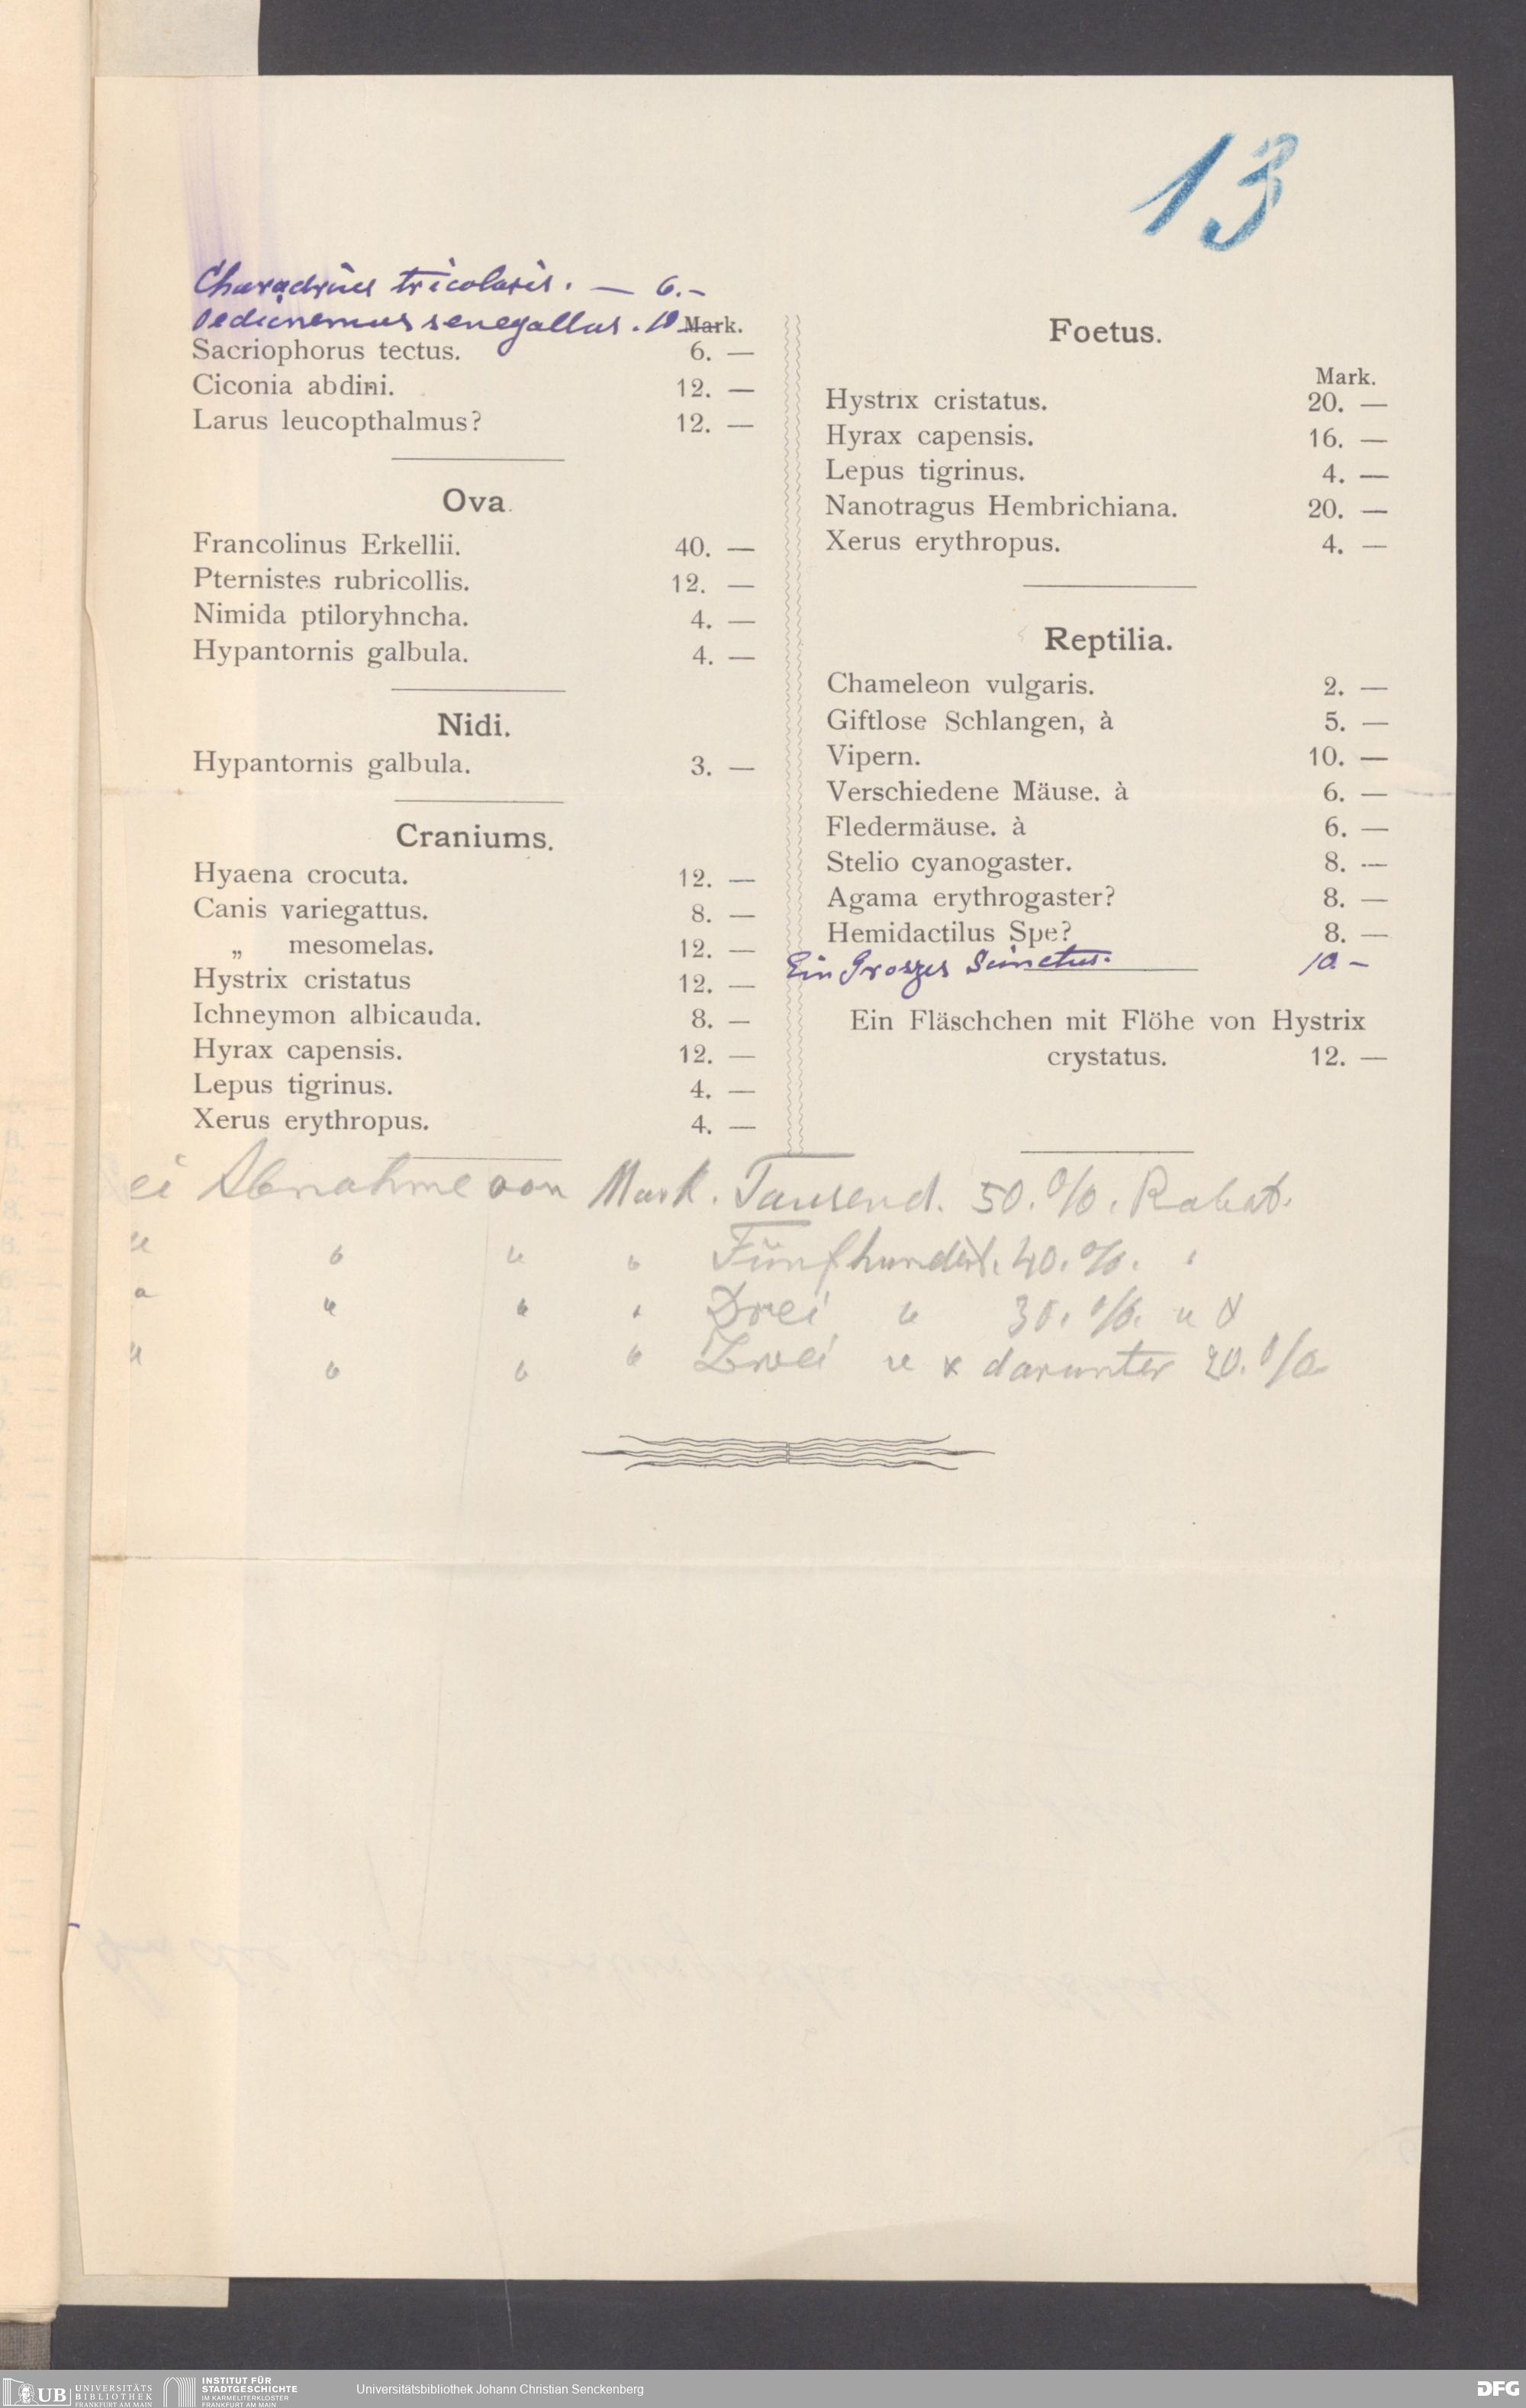 13
Charadrius tricolaris. — 6.–
Oedicnemus senegallus. 10
Mark.
Sacriophorus tectus. 6. —
Ciconia abdini. 12. —
Larus leucopthalmus? 12. —
Ova.
Francolinus Erkellii. 40. —
Pternistes rubricollis. 12. —
Nimida ptiloryhncha. 4. —
Hypantornis galbula. 4. —
Nidi.
Hypantornis galbula. 3. —
Craniums.
Hyaena crocuta. 12. —
Canis variegattus. 8. —
„ mesomelas. 12. —
Hystrix cristatus 12. —
Ichneymon albicauda. 8. —
Hyrax capensis. 12. —
Lepus tigrinus. 4. —
Xerus erythropus. 4. —
Foetus.
Mark.
Hystrix cristatus. 20. —
Hyrax capensis. 16. —
Lepus tigrinus. 4. —
Nanotragus Hembrichiana. 20. —
Xerus erythropus. 4. —
Reptilia.
Chameleon vulgaris. 2. —
Giftlose Schlangen, à 5. —
Vipern. 10. —
Verschiedene Mäuse. à 6. —
Fledermäuse. à 6. —
Stelio cyanogaster. 8. —
Agama erythrogaster? 8. —
Hemidactilus Spe? 8. —
Ein Groszes Scinctus. 10 –
Ein Fläschchen mit Flöhe von Hystrix
crystatus. 12. —
ei Abnahme von Mark. Tausend. 50. %. Rabat.
" " " " Fünfhundert. 40. %. "
" " " " Drei " 30. %. "
" " " " Zwei " darunter 20. %
UB UNIVERSITÄTS
BIBLIOTHEK
FRANKFURT AM MAIN
INSTITUT FÜR
STADTGESCHICHTE
IM KARMELITERKLOSTER
FRANKFURT AM MAIN
Universitätsbibliothek Johann Christian Senckenberg
DFG